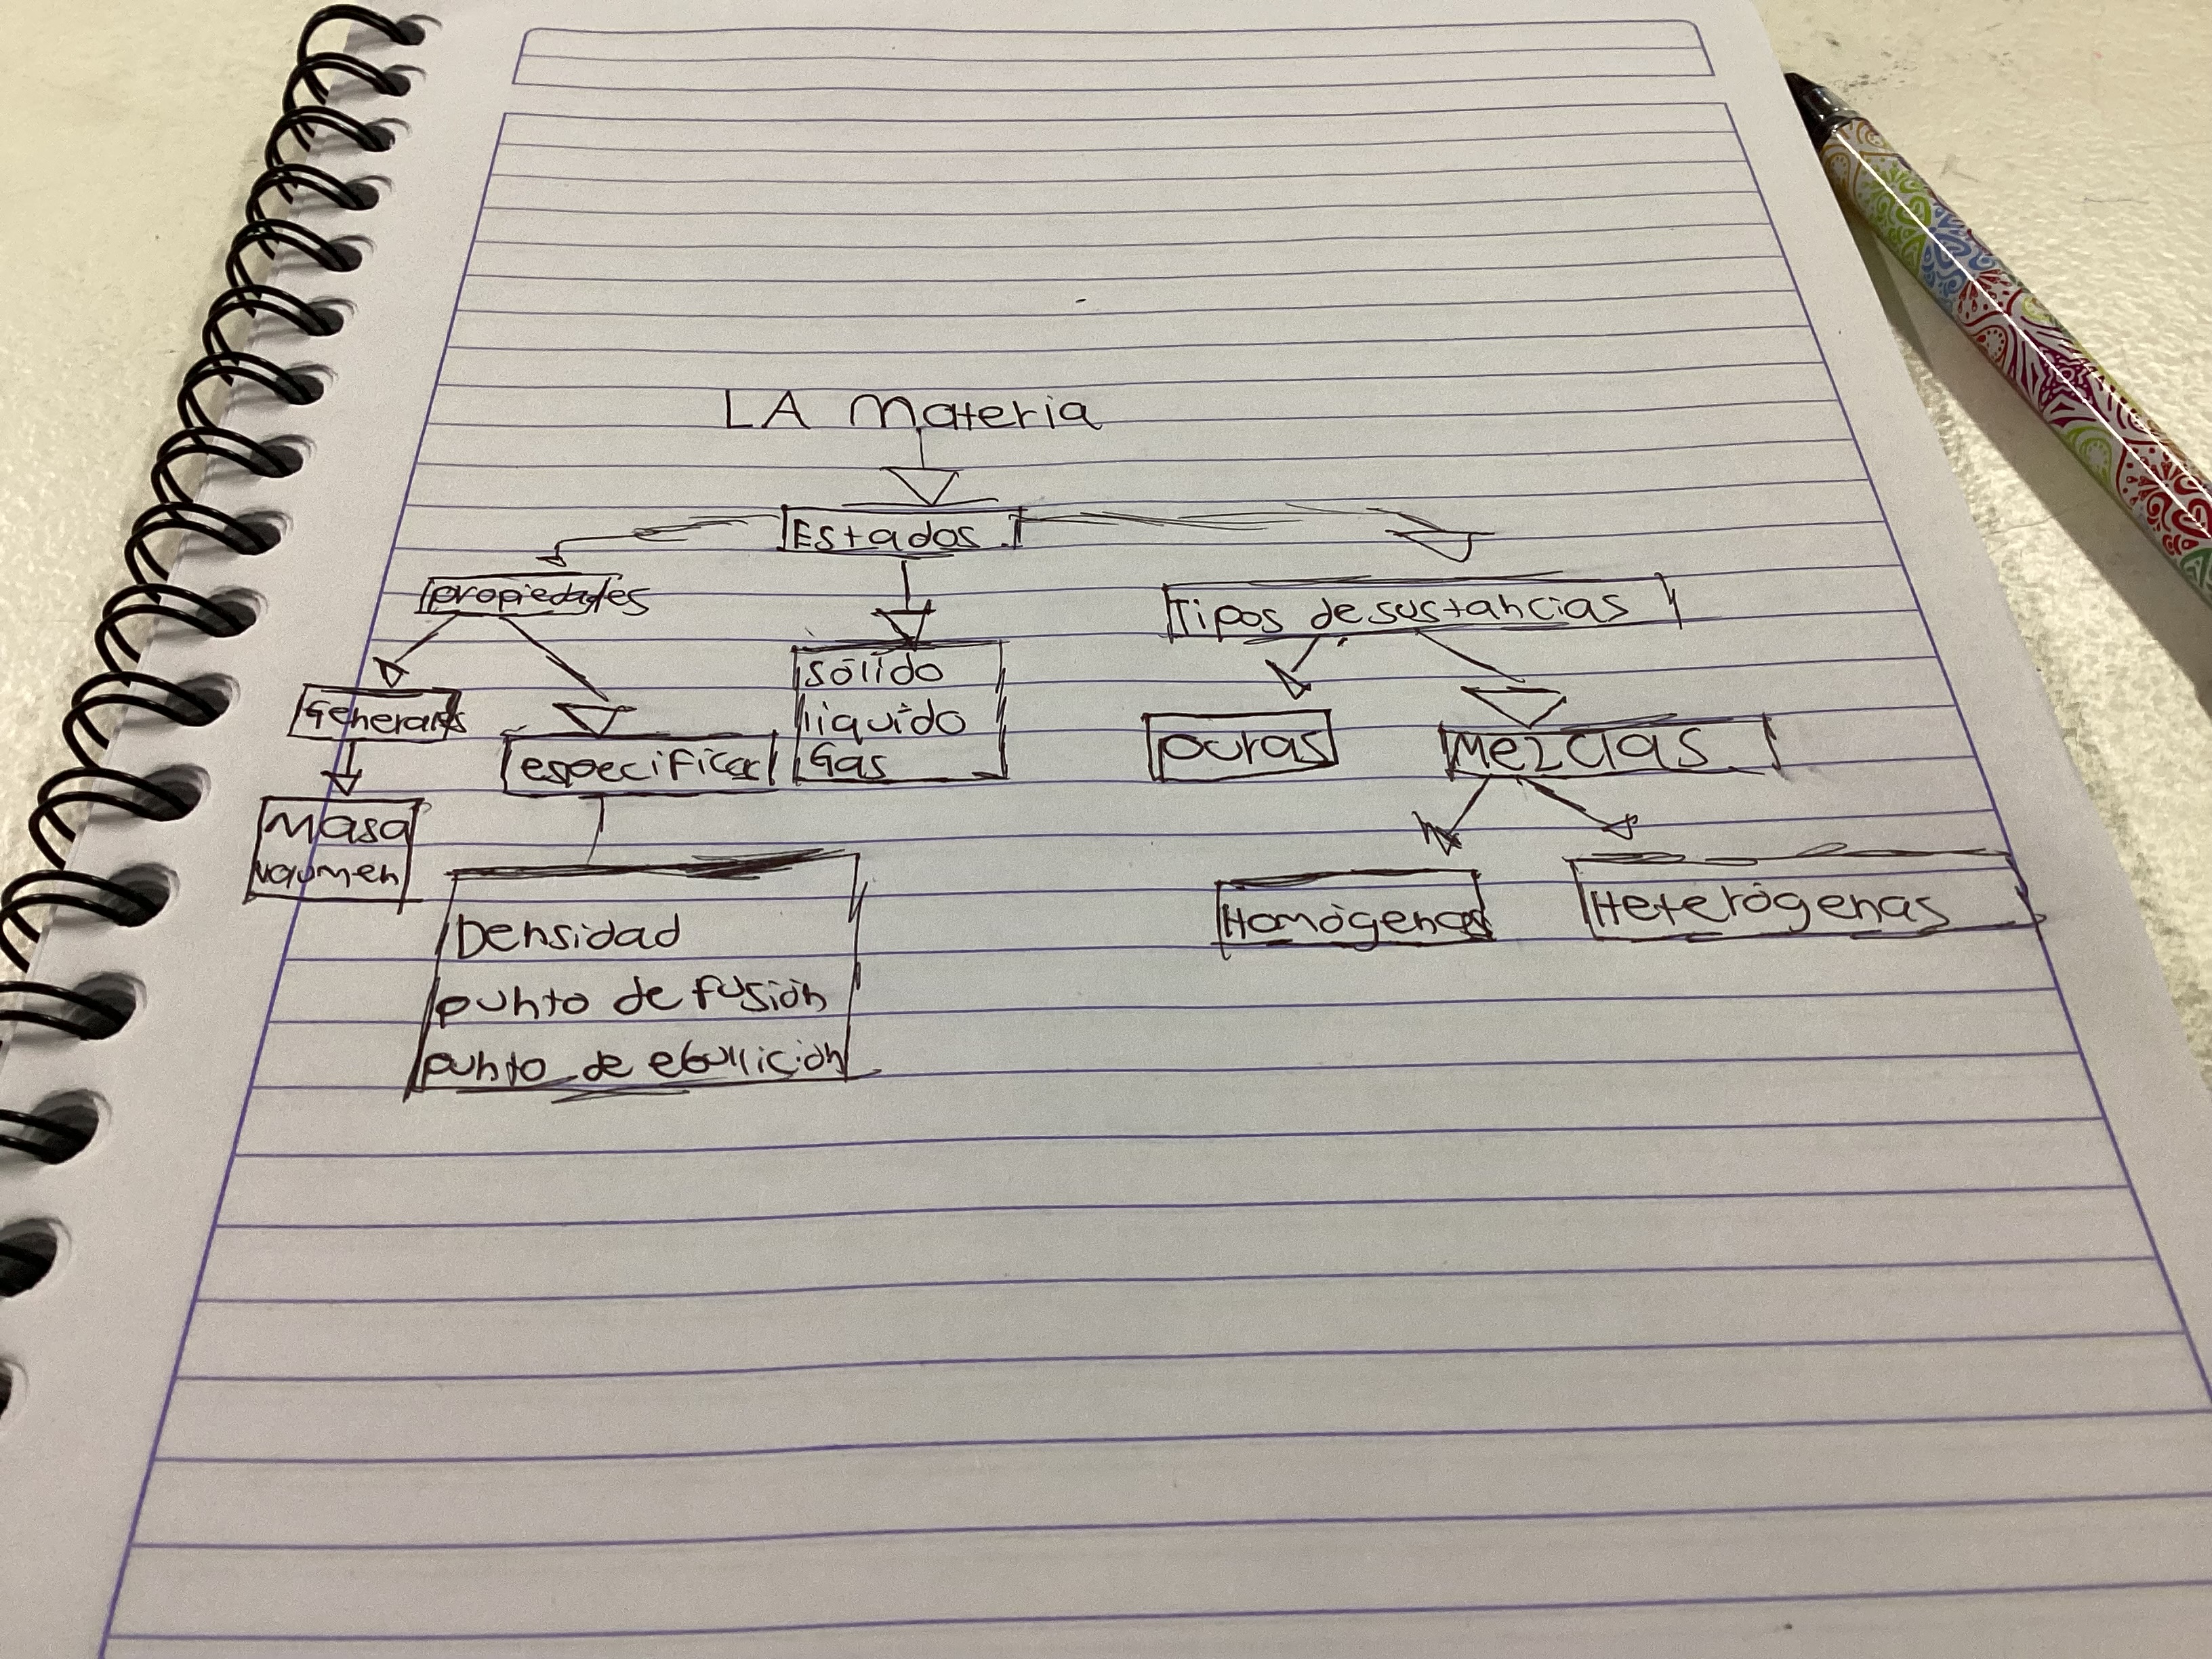 LA Materia
Estados
propiedades
Tipos de sustancias
Generales
especificas
sólido
líquido
Gas
puras
Mezclas
Masa
volumen
Homógenas
Heterógenas
Densidad
punto de fusión
punto de ebullición